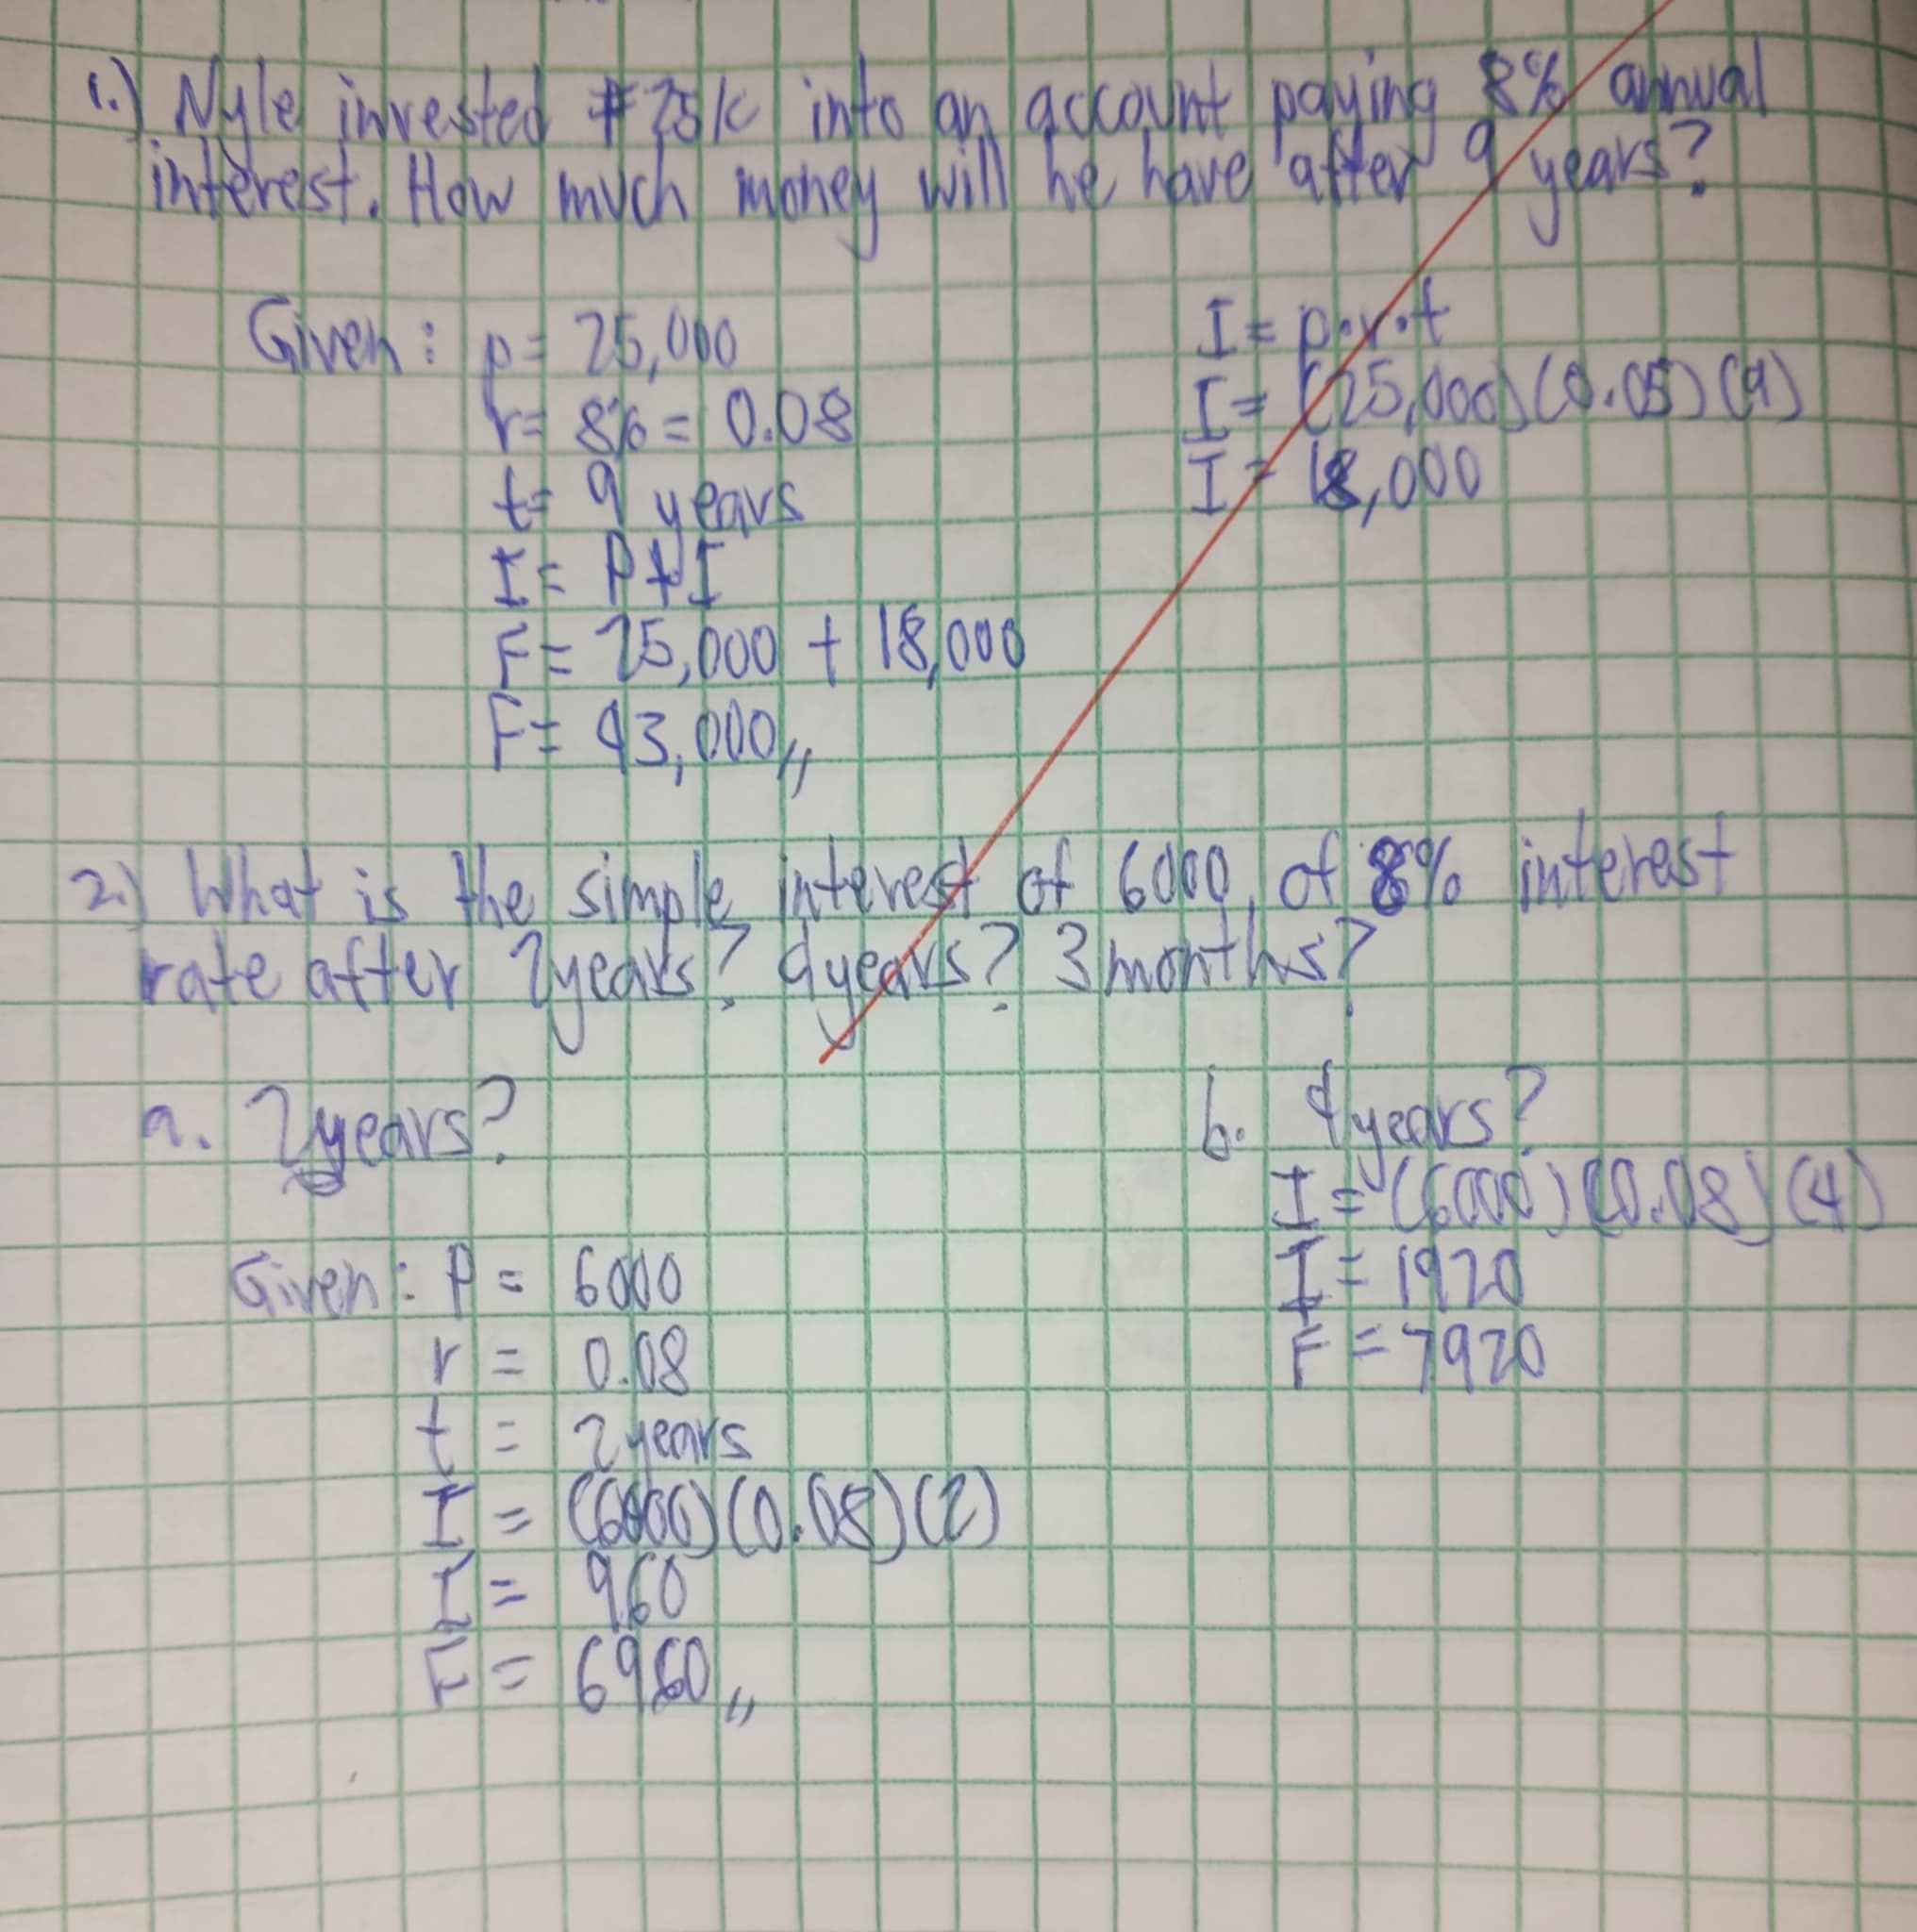 1.) Nyle invested ₱25k into an account paying 8% annual
interest. How much money will he have after 9 years?
Given: p= 25,000
r= 8% = 0.08
t= 9 years
I= P+I
F= 25,000 + 18,000
F= 43,000,,
I= p.r.t
I= (25,000)(0.05)(9)
I= 18,000
2.) What is the simple interest of 6000, of 8% interest
rate after 2years? 4years? 3months?
a. 2years?
Given: P = 6000
r = 0.08
t = 2years
I = (6000)(0.08)(2)
I = 960
F = 6960,,
b. 4years?
I = (6000)(0.08)(4)
I = 1920
F = 7920